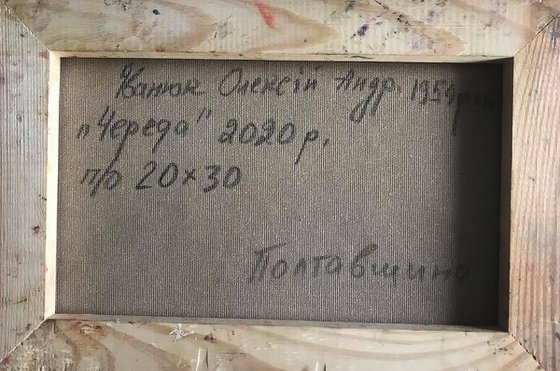 Олексій Андр. 1954р.н
„Череда" 2020 р.
п/о 20×30
Полтавщина